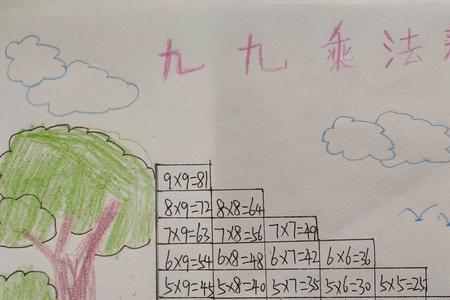 九九乘法
9×9=81
8×9=72 8×8=64
7×9=63 7×8=56 7×7=49
6×9=54 6×8=48 6×7=42 6×6=36
5×9=45 5×8=40 5×7=35 5×6=30 5×5=25